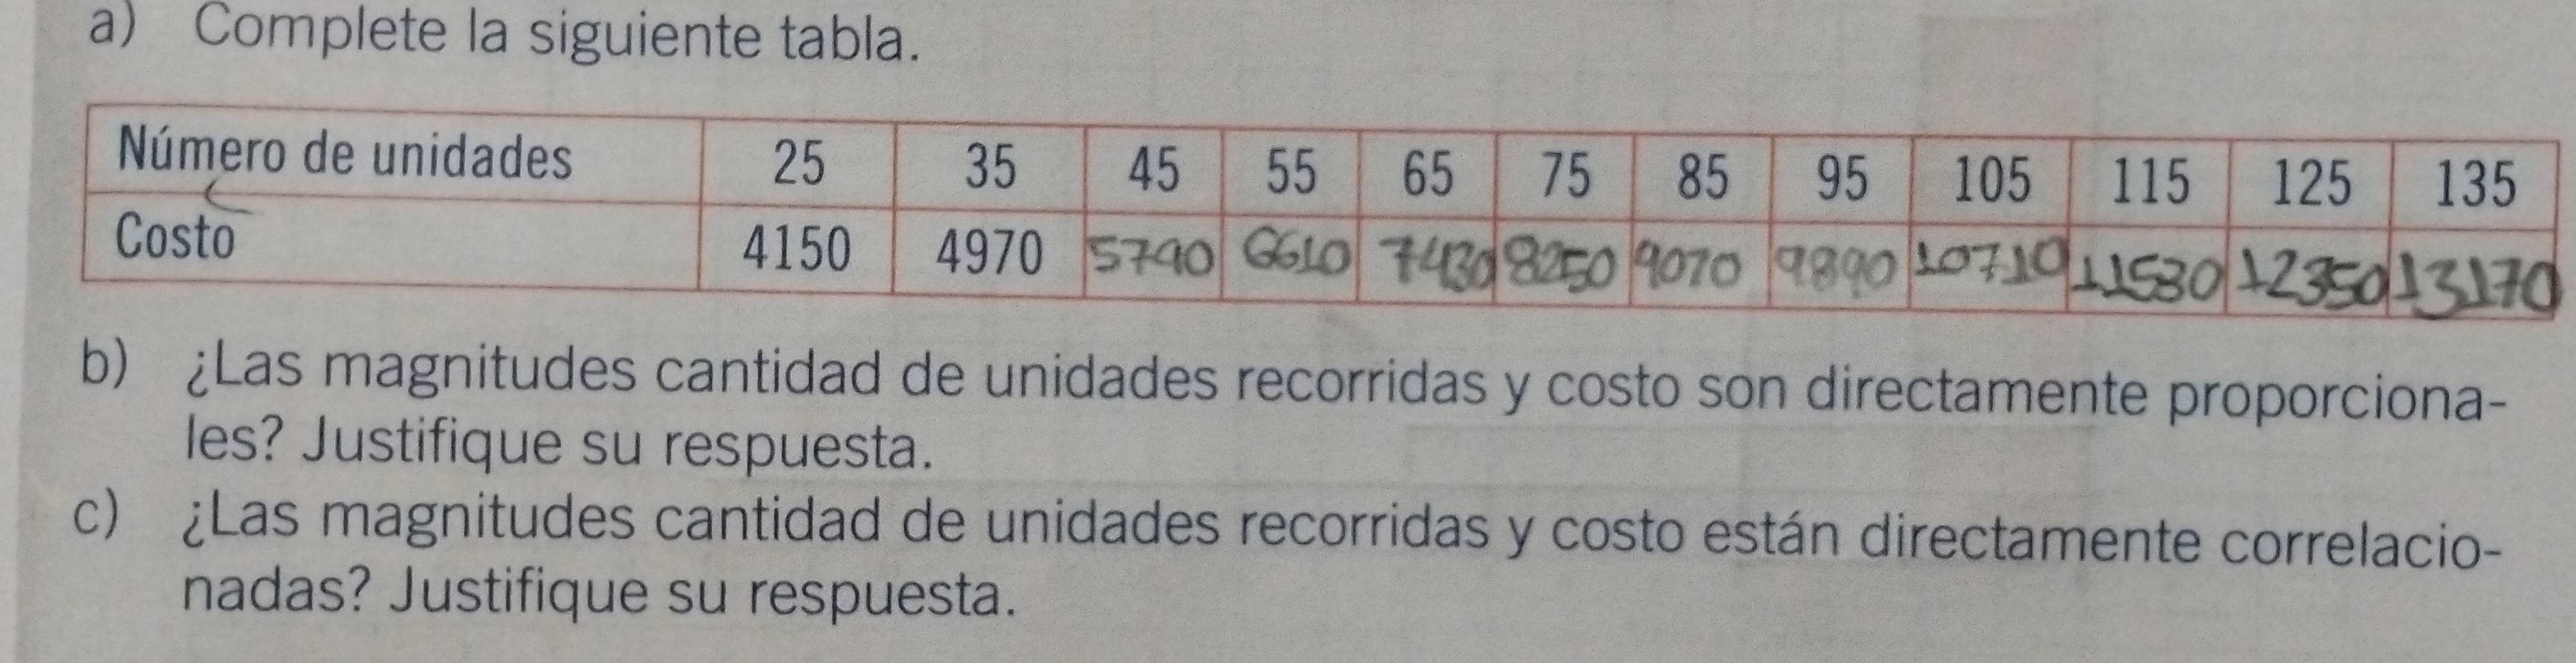 a) Complete la siguiente tabla.
Número de unidades 25 35 45 55 65 75 85 95 105 115 125 135
Costo 4150 4970 5790 6610 7430 8250 9070 9890 10710 11530 12350 13170
b) ¿Las magnitudes cantidad de unidades recorridas y costo son directamente proporciona-
les? Justifique su respuesta.
c) ¿Las magnitudes cantidad de unidades recorridas y costo están directamente correlacio-
nadas? Justifique su respuesta.